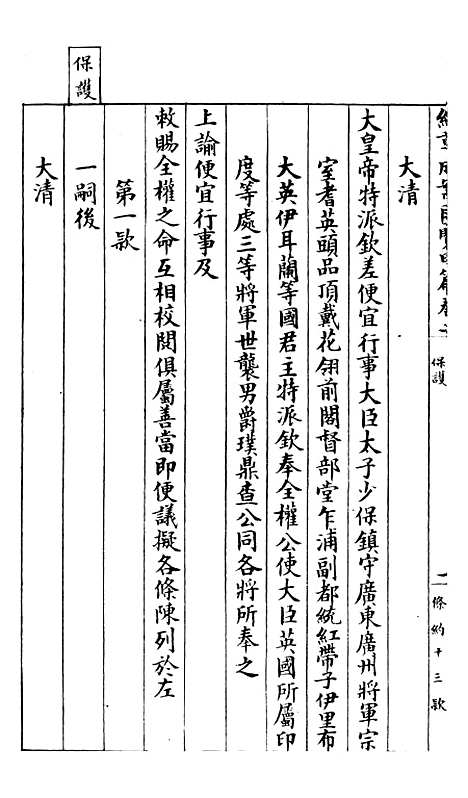 大清
大皇帝特派欽差便宜行事大臣太子少保鎮守廣東廣州將軍宗
室耆英頭品頂戴花翎前閣督部堂乍浦副都統紅帶子伊里布
大英伊耳蘭等國君主特派欽奉全權公使大臣英國所屬印
度等處三等將軍世襲男爵璞鼎查公同各將所奉之
上諭便宜行事及
敕賜全權之命互相校閱俱屬善當即便議擬各條陳列於左
第一款
一嗣後
大清
保護
保護
二
條約十三款